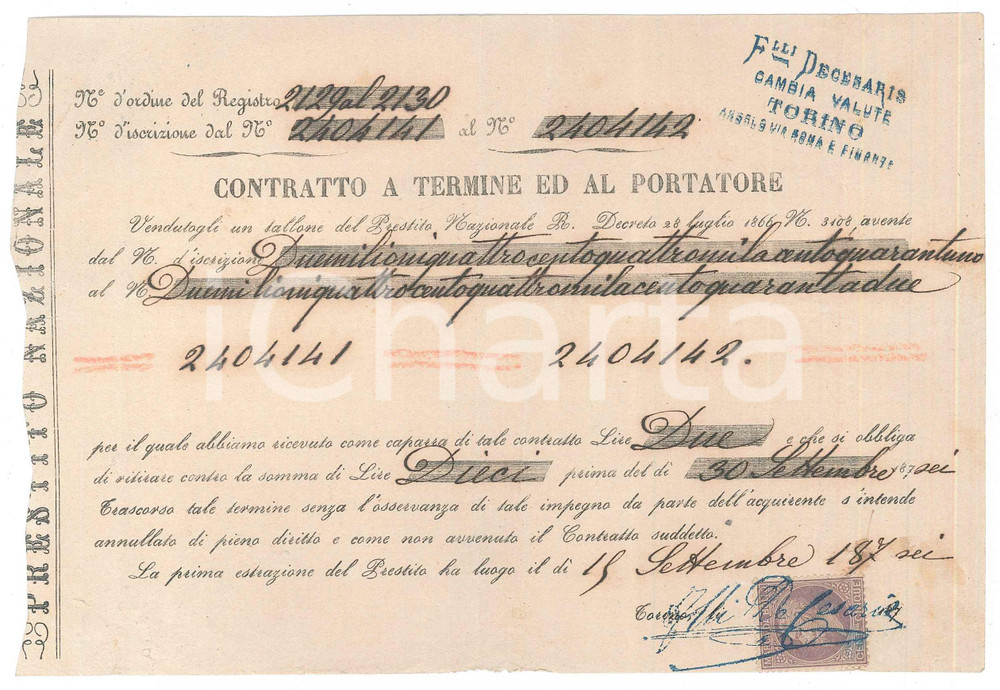 PRESTITO NAZIONALE
Flli DECESARIS
CAMBIA VALUTE
TORINO
ANGOLO VIA ROMA E FINANZE
N° d'ordine del Registro 2129 al 2130
N° d'iscrizione dal N° 2404141 al N° 2404142
CONTRATTO A TERMINE ED AL PORTATORE
Vendutogli un tallone del Prestito Nazionale R. Decreto 28 luglio 1866 N. 3108 avente
dal N. d'iscrizione Duemilioniquattrocentoquattromilacentoquarantuno
al N Duemilioniquattrocentoquattromilacentoquarantadue
2404141 2404142.
iCharta
per il quale abbiamo ricevuto come caparra di tale contratto Lire Due e che si obbliga
di ritirare contro la somma di Lire Dieci prima del dì 30 Settembre 187sei
Trascorso tale termine senza l'osservanza di tale impegno da parte dell'acquirente s'intende
annullato di pieno diritto e come non avvenuto il Contratto suddetto.
La prima estrazione del Prestito ha luogo il dì 15 Settembre 187 sei
Torino Flli De Cesaris